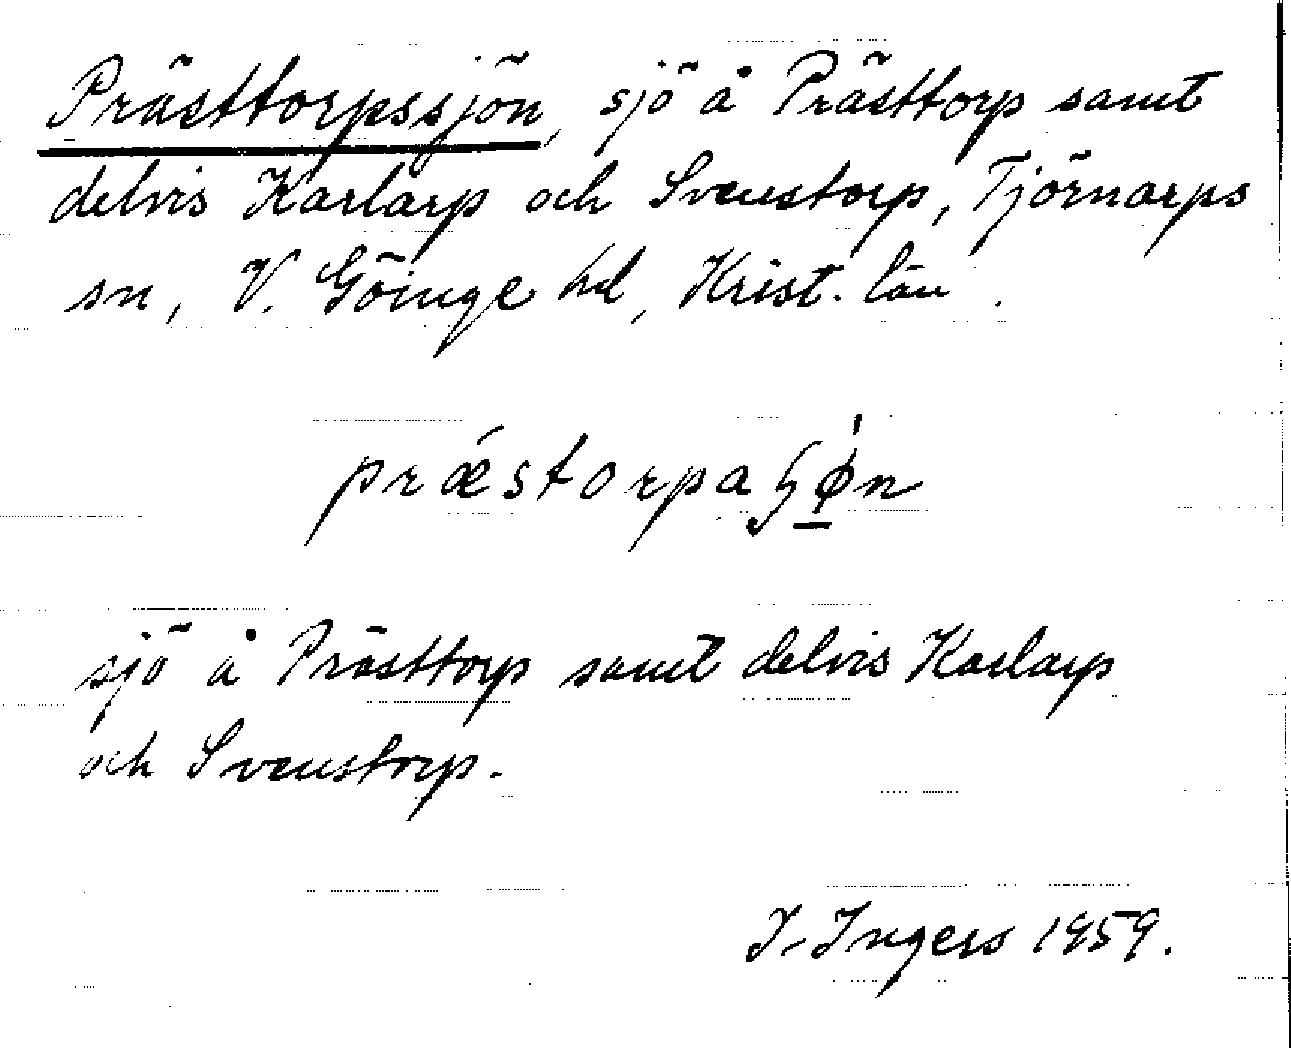 Prästtorpssjön, sjö å Prästtorp samt
delvis Karlarp och Svenstorp, Tjörnarps
sn, V. Göinge hd, Krist. län.
præ´storpaʃø̲´n
sjö å Prästtorp samt delvis Karlarp
och Svenstorp.
I. Ingers 1959.